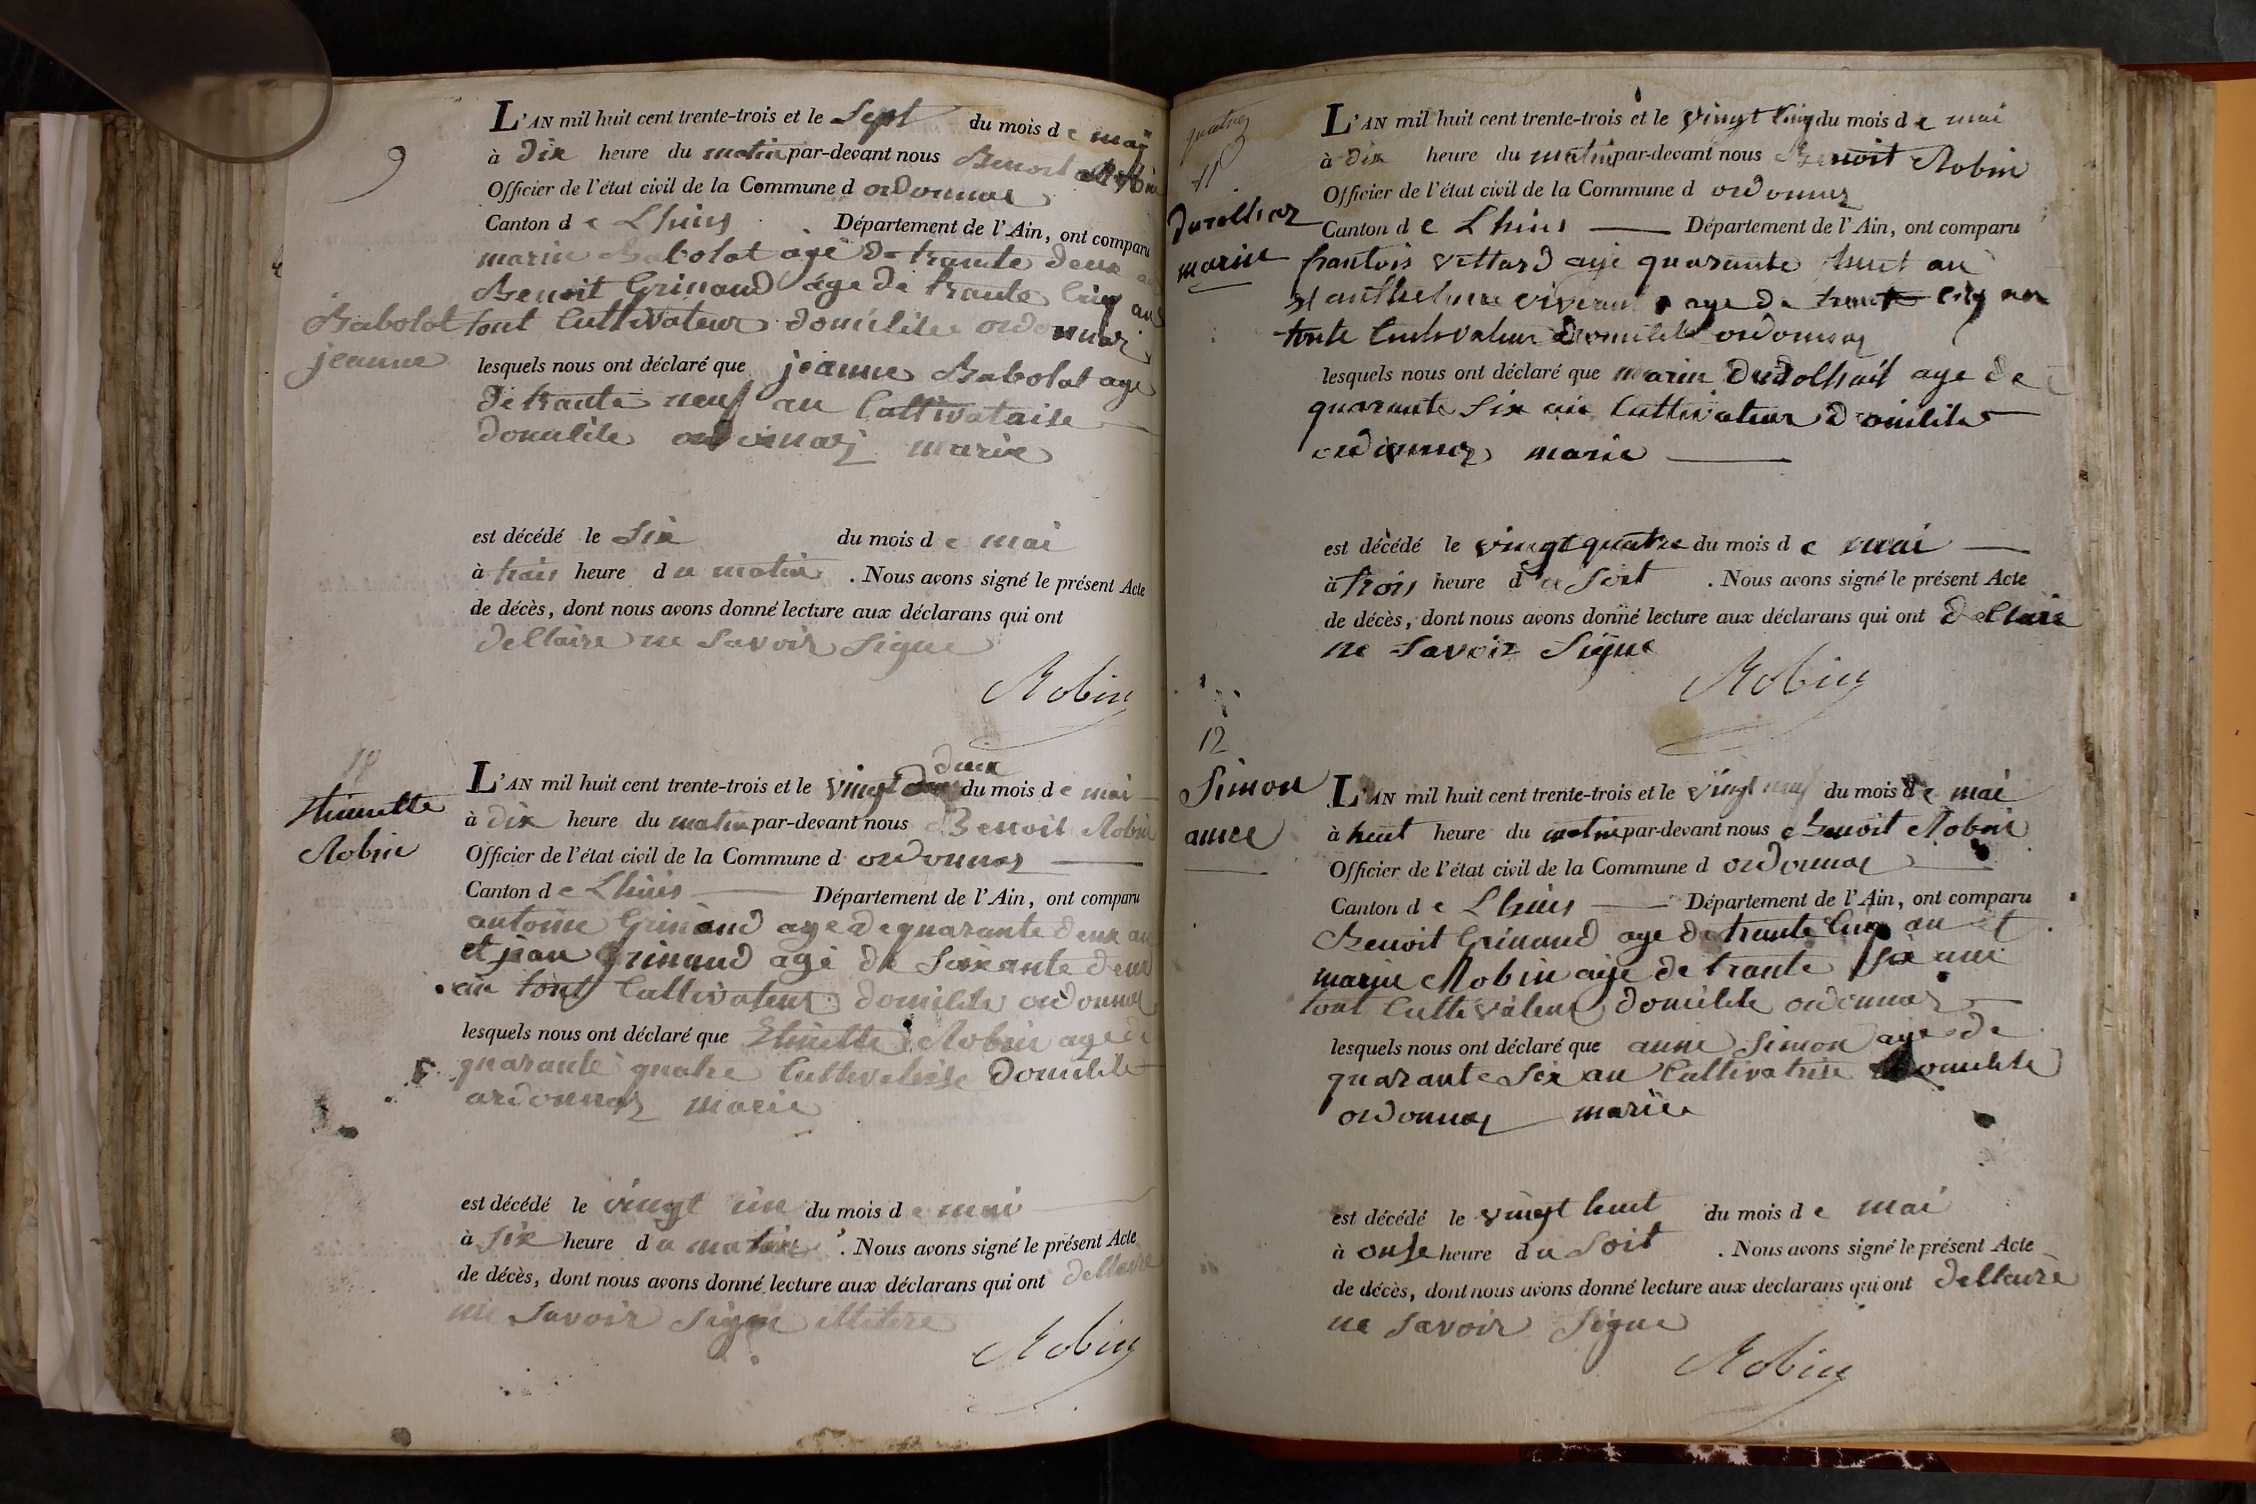 9
L'AN mil huit cent trente-trois et le Sept du mois de mai
à dix heure du matin par-devant nous Benoit Robin
Officier de l'état civil de la Commune d ordonnas
Canton de Lhuis Département de l'Ain, ont comparu
marin Babolat age de trante deux
Benoit Grinand age de trante cinq an
Babolat
jeanne
tout Cultivateur domilile ordonnas
lesquels nous ont déclaré que jeanne Babolat age
de trante neuf an Cultivataise
domilile ordonnas marie
est décédé le Six du mois de mai
à trais heure du matin. Nous avons signé le présent Acte
de décès, dont nous avons donné lecture aux déclarans qui ont
dellaire ne Savoir Signe
Robin
10
Etiennette
Robin
deux
L'AN mil huit cent trente-trois et le vingt du mois de mai
à dix heure du matin par-devant nous Benoit Robin
Officier de l'état civil de la Commune d ordonnas
Canton de Lhuis Département de l'Ain, ont comparu
antoine Grinand age de quarante deux an
et jean Grinand age de Soixante deux
an tout Cultivateur domilile ordonnas
lesquels nous ont déclaré que Robin age de
quarante quatre Cultivatrise domilile
ordonnas marie
est décédé le vingt un du mois de mai
à Six heure du matin. Nous avons signé le présent Acte
de décès, dont nous avons donné lecture aux déclarans qui ont dellaire
ne Savoir Signe
Robin
11
marin
L'AN mil huit cent trente-trois et le vingt Cinq du mois de mai
à dix heure du matin par-devant nous Benoit Robin
Officier de l'état civil de la Commune d ordonnas
Canton de Lhuis Département de l'Ain, ont comparu
frantois vettard age quarante huit an
et anthelme age de trente Cinq an
toute Cultivateur domilile ordonnas
lesquels nous ont déclaré que marin age de
quarante Six an Cultivateur domilile
ordonnas marie
est décédé le vingt quatre du mois de mai
à trois heure du Soit. Nous avons signé le présent Acte
de décès, dont nous avons donné lecture aux déclarans qui ont dellaire
ne Savoir Signe
Robin
12
Simon
anne
L'AN mil huit cent trente-trois et le vingt neuf du mois de mai
à huit heure du matin par-devant nous Benoit Robin
Officier de l'état civil de la Commune d ordonnas
Canton de Lhuis Département de l'Ain, ont comparu
Benoit Grinand age de trante Cinq an et
marin Robin age de trante Six ans
tout Cultivateur domilile ordonnas
lesquels nous ont déclaré que anne Simon age de
quarante Six an Cultivatrise domilile
ordonnas mariée
est décédé le vingt huit du mois de mai
à onse heure du Soit. Nous avons signé le présent Acte
de décès, dont nous avons donné lecture aux declarans qui ont dellaire
ne Savoir Signe
Robin